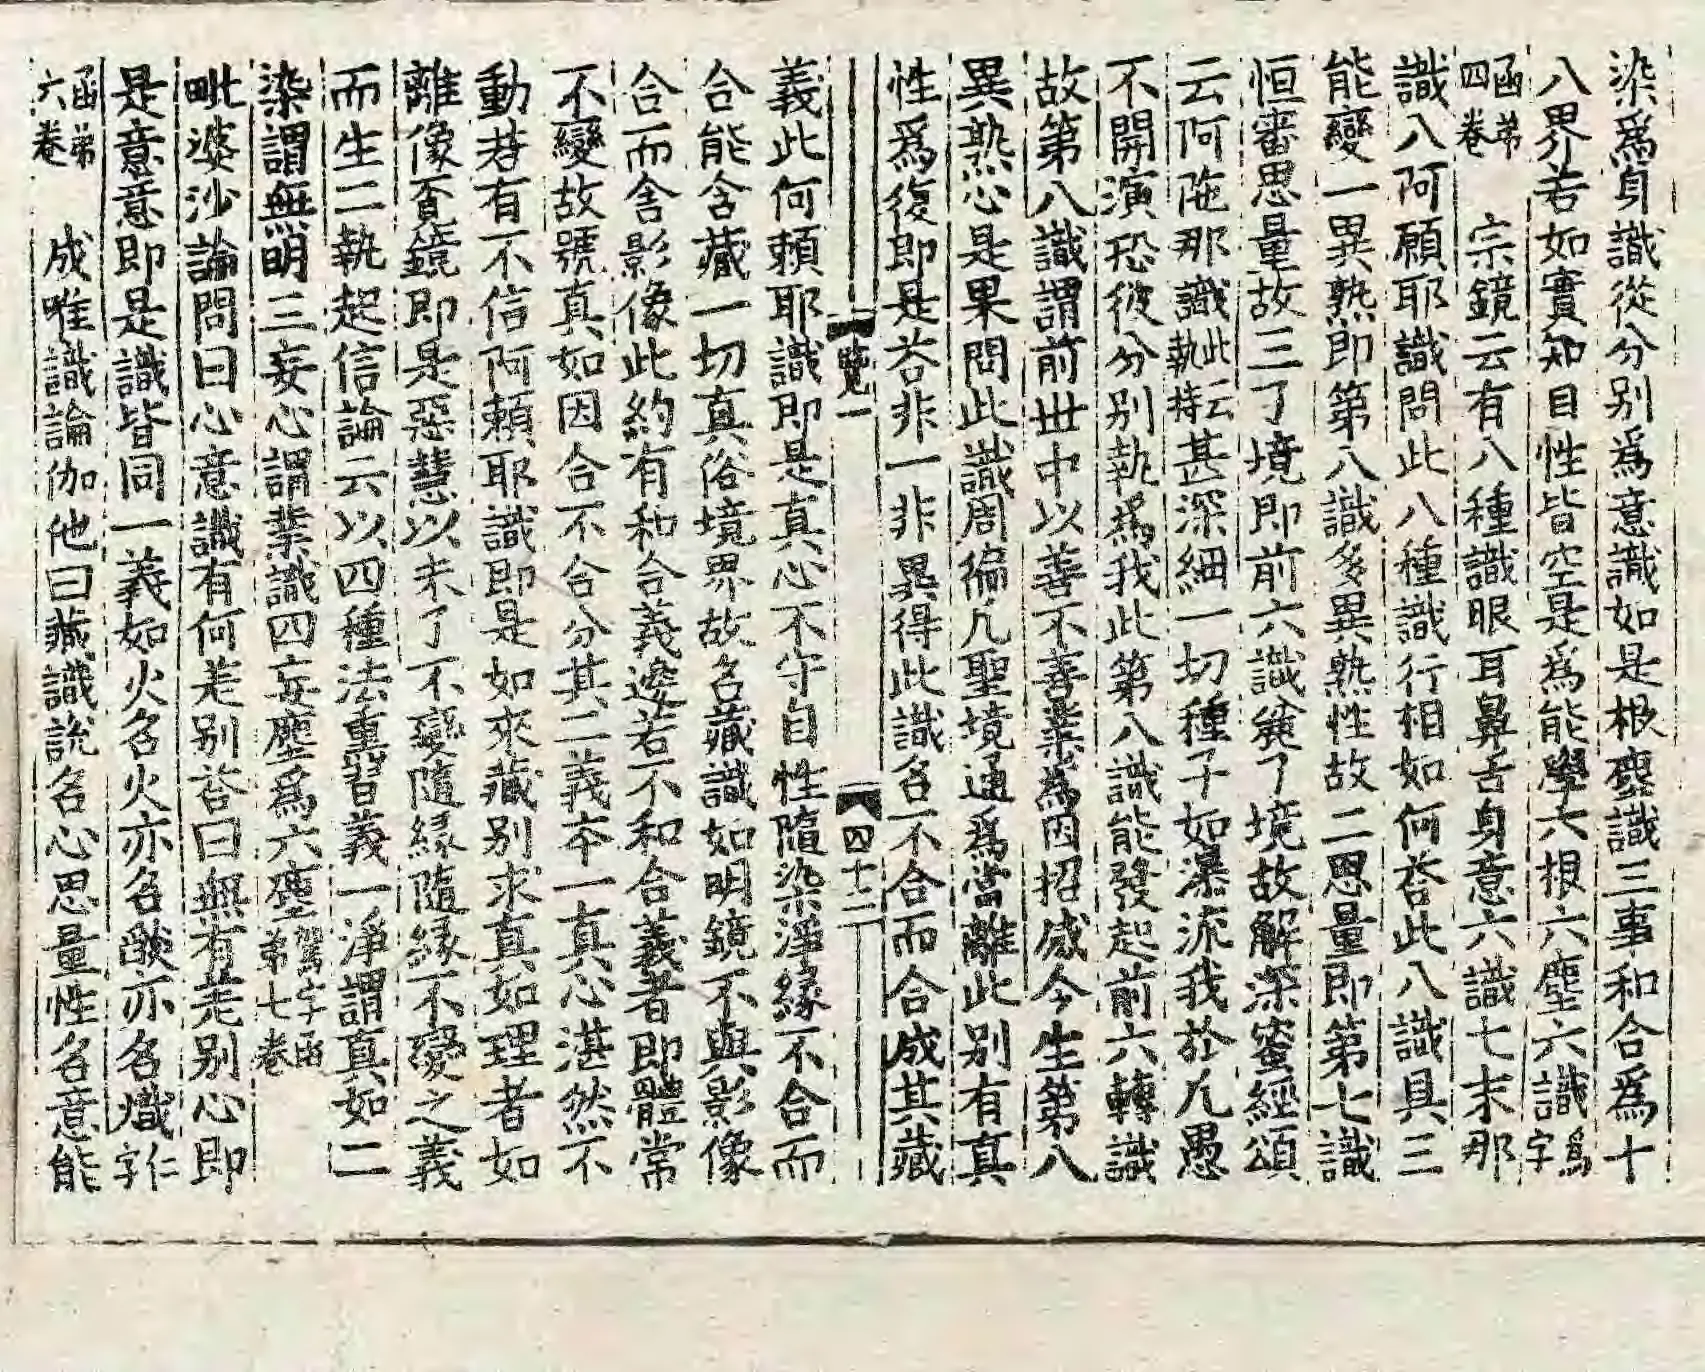 染爲身識從分别爲意識如是根塵識三事和合爲十
八界若如實知自性皆空是爲能學六根六塵六識爲字
函第四卷 宗鏡云有八種識眼耳鼻舌身意六識七末那
識八阿願耶識問此八種識行相如何荅此八識具三
能變一異熟即第八識多異熟性故二思量即第七識
恒審思量故三了境即前六識䴡了境故解深蜜經頌
云阿陁那識此云執持甚深細一切種子如瀑流我於凡愚
不開演恐彼分别執爲我此第八識能發起前六轉識
故第八識謂前世中以善不善業爲因招感今生第八
異熟心是果問此識周徧凡聖境通爲當離此别有真
性爲復即是荅非一非異得此識名不合而合成其藏
覽一 四十二
義此何頼耶識即是真心不守自性隨染淨緣不合而
合能含藏一切真俗境界故名藏識如明鏡不與影像
合而含影像此約有和合義邊若不和合義者即體常
不變故號真如因合不合分其二義夲一真心湛然不
動若有不信阿頼耶識即是如來藏别求真如理者如
離像覔鏡即是惡慧以未了不變隨緣隨緣不變之義
而生二執起信論云以四種法熏習義一淨謂真如二
染謂無明三妄心謂業識四妄塵爲六塵駕字函第七卷
毗婆沙論問曰心意識有何差别荅曰無有差别心即
是意意即是識皆同一義如火名火亦名燄亦名熾仁字
函第六卷 成唯識論伽他曰藏識說名心思量性名意能